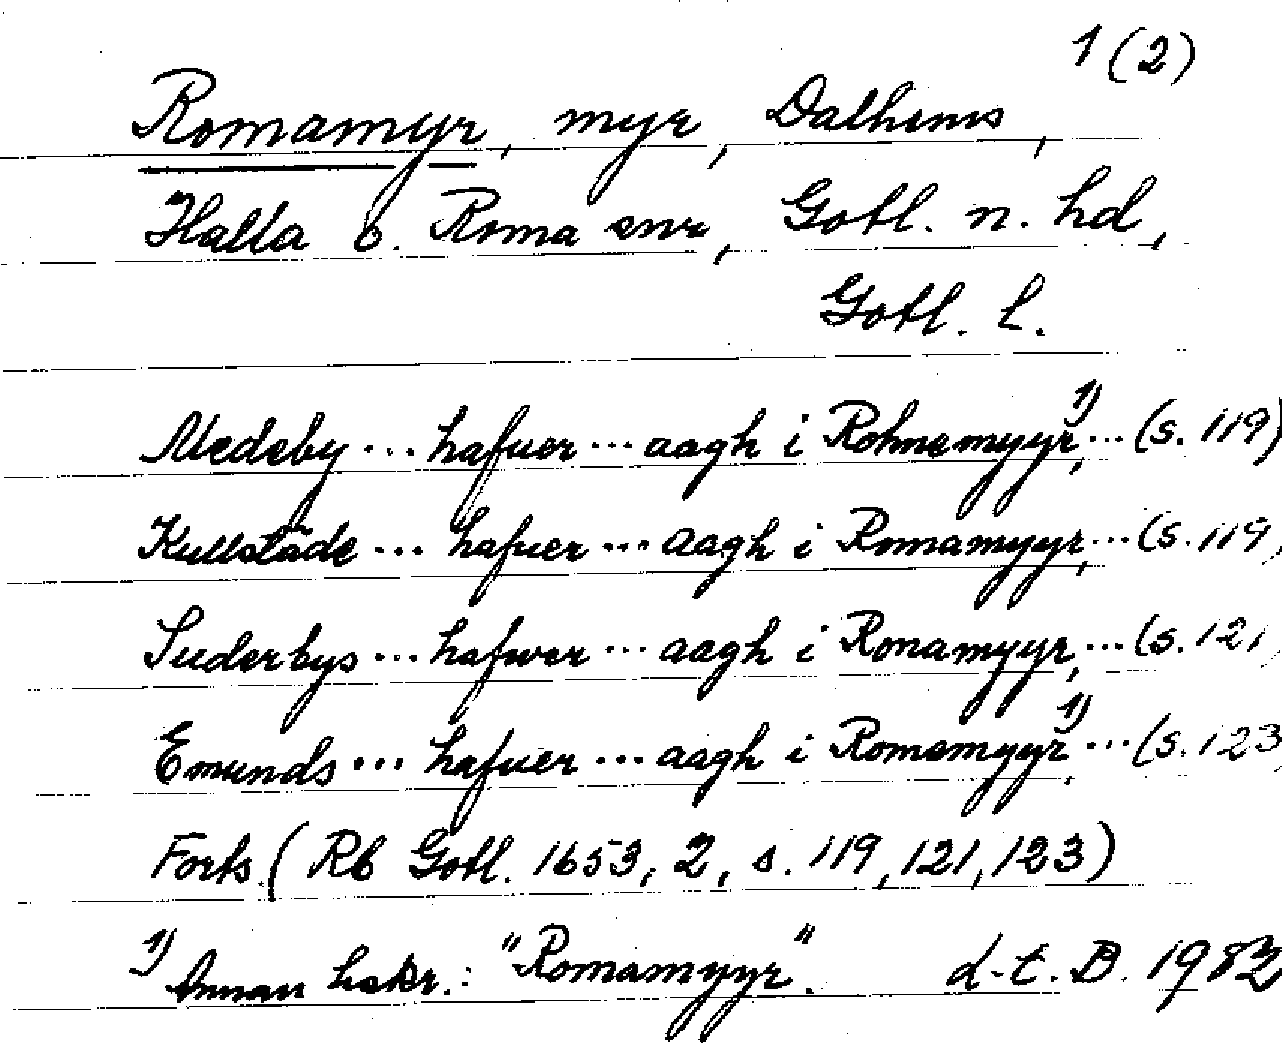 1(2)
Romamyr, myr, Dalhems,
Halla o. Roma snr, Gotl. n. hd,
Gotl. l.
Medeby ... hafuer ... aagh i Rohnemyyr,1) ... (s. 119)
Kullstäde ... hafuer ... aagh i Romamyyr, ... (s. 119,
Suderbys ... hafwer ... aagh i Ronamyyr, ... (s. 121,
Emunds ... hafuer ... aagh i Romemyyr1) ... (s. 123,
Forts. (Rb Gotl. 1653, 2, s. 119, 121, 123)
1) Annan hskr.: "Romamyyr". d-t. B. 1982